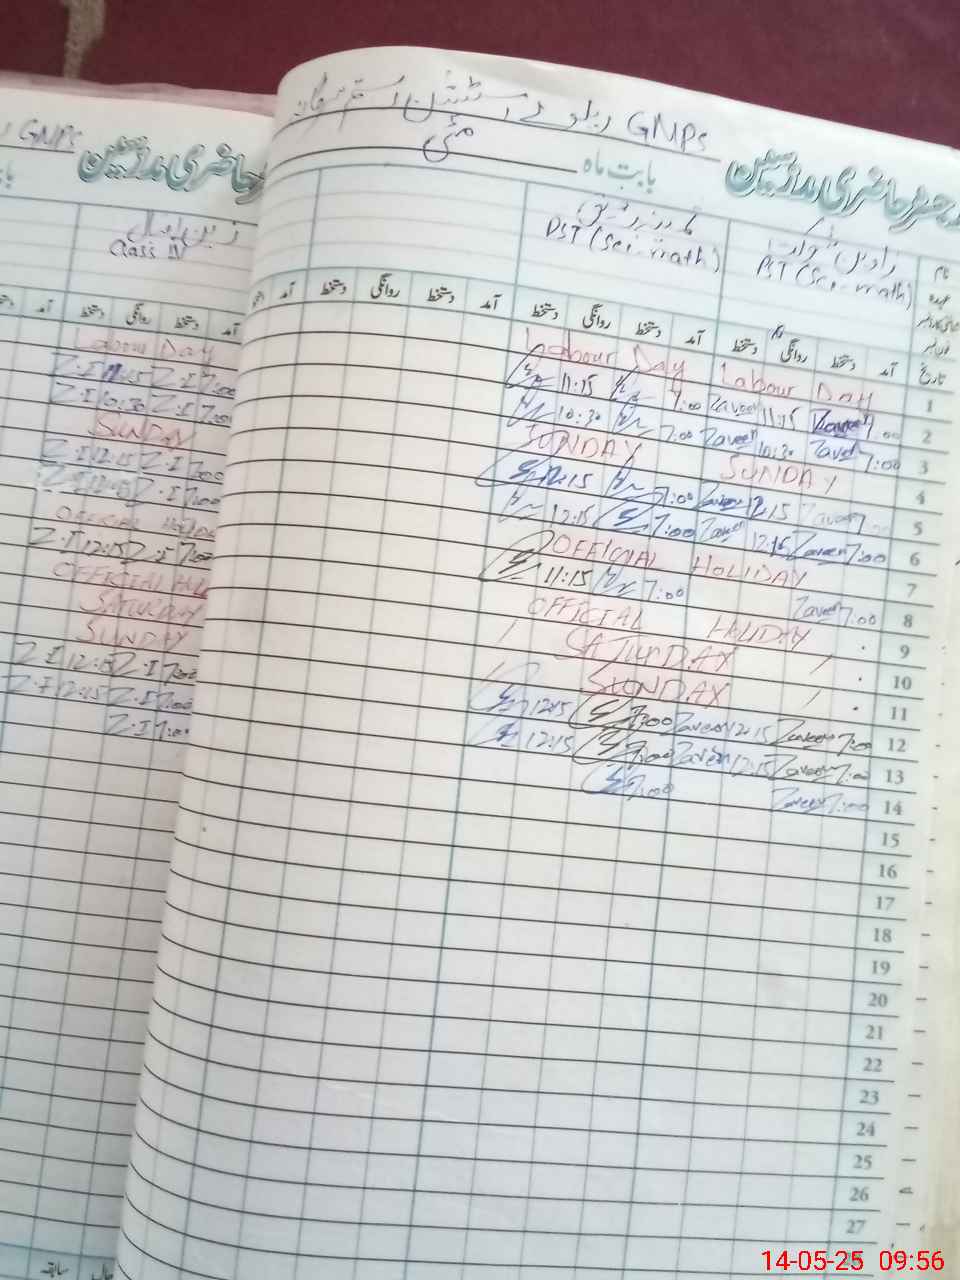 GNPS
حاضری مدرسین
Class IV
آمد دستخط روانگی دستخط
Labour Day
Z.I 7:00 Z.I 11:15
Z.I 7:00 Z.I 10:30
SUNDAY
Z.I 7:00 Z.I 12:15
Z.I 7:00 Z.I 12:15
OFFICIAL HOLIDAY
Z.I 7:00 Z.I 12:15
OFFICIAL
SATURDAY
SUNDAY
Z.I 7:00 Z.I 12:15
Z.I 7:00 Z.I 12:15
Z.I 7:00
سابقہ
GNPS ریلوے اسٹیشن
رجسٹر حاضری مدرسین بابت ماہ مئی
نام
عہدہ PST (Sci-math) PST (Sci-math)
تاریخ آمد دستخط روانگی دستخط آمد دستخط روانگی دستخط آمد دستخط روانگی دستخط
1 Labour Day Labour Day
2 7:00 Zaveen 11:15 Zaveen 7:00 11:15
3 7:00 Zaveen 10:30 Zaveen 7:00 10:30
4 SUNDAY SUNDAY
5 7:00 Zaveen 12:15 Zaveen 7:00 12:15
6 7:00 Zaveen 12:15 Zaveen 7:00 12:15
7 OFFICIAL HOLIDAY
8 7:00 Zaveen 7:00 11:15
9 OFFICIAL HOLIDAY
10 SATURDAY
11 SUNDAY
12 7:00 Zaveen 12:15 Zaveen 7:00 12:15
13 7:00 Zaveen 12:15 Zaveen 7:00 12:15
14 7:00 Zaveen 7:00
15
16
17
18
19
20
21
22
23
24
25
26
27
28
14-05-25 09:56